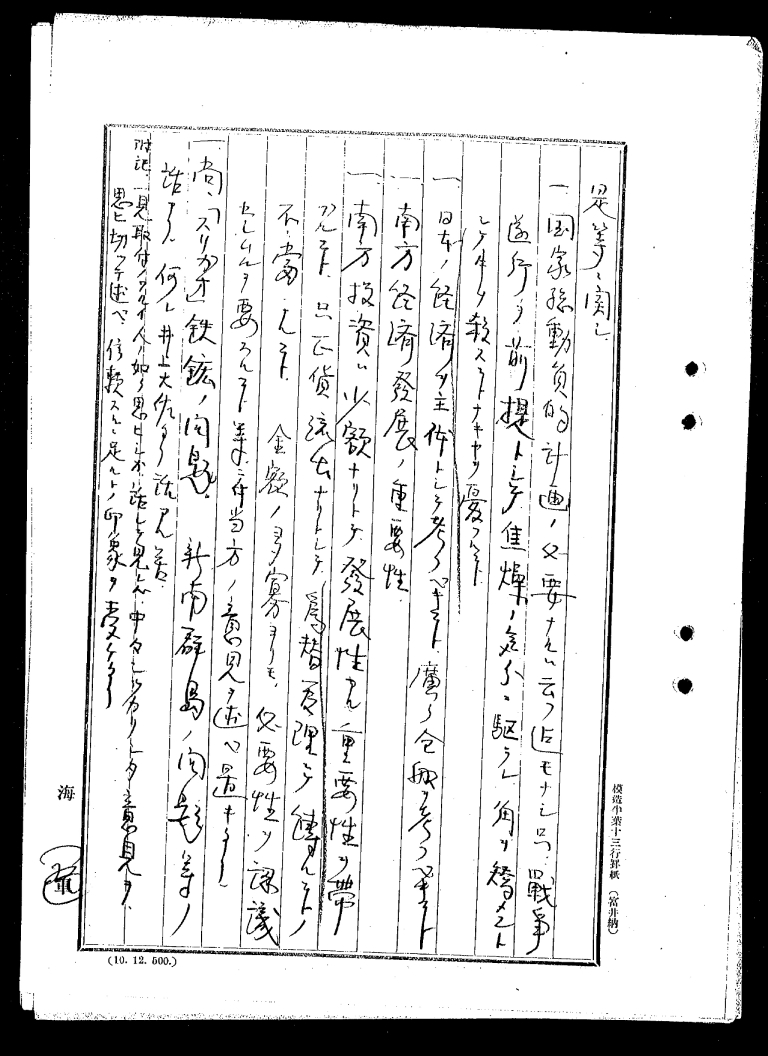 是等ニ関シ
一 国家総動員的計画ノ必要ナルハ云フ迄モナシ只戦争
遂行ヲ前提トシテ焦燥ノ気分ニ駆ラレ角ヲ矯メント
シテ牛ヲ殺スコトナキヤヲ憂フルコト
一 日本ノ経済ヲ主体トシテ考フベキコト 廣ク合理ヲ考フベキコト
南方経済發展ノ重要性
一 南方投資ハ少額ナリトテ發展性アル重要性ヲ帯
フルコト 只正貨流出ナリトシテ為替管理ニテ縛ルコトノ
不当ナルコト 金額ノ多寡ヨリモ、必要性ヲ認識
セシムルヲ要スルコト等ニ付当方ノ意見ヲ述ヘ置キタリ
一 尚「スリガオ」鉄鉱ノ問題 新南群島ノ問題等ノ
話アリ 何レ井上大佐ヨリ話アル筈
附記 一見取付ノワルイ人ノ如ク思ヒシガ話シテ見ルト中々シッカリシタ意見ヲ
思ヒ切ツテ述ベ、信頼スルニ足ルトノ印象ヲ受ケタリ
海
模造半葉十三行罫紙(富井納)
(10. 12. 500.)